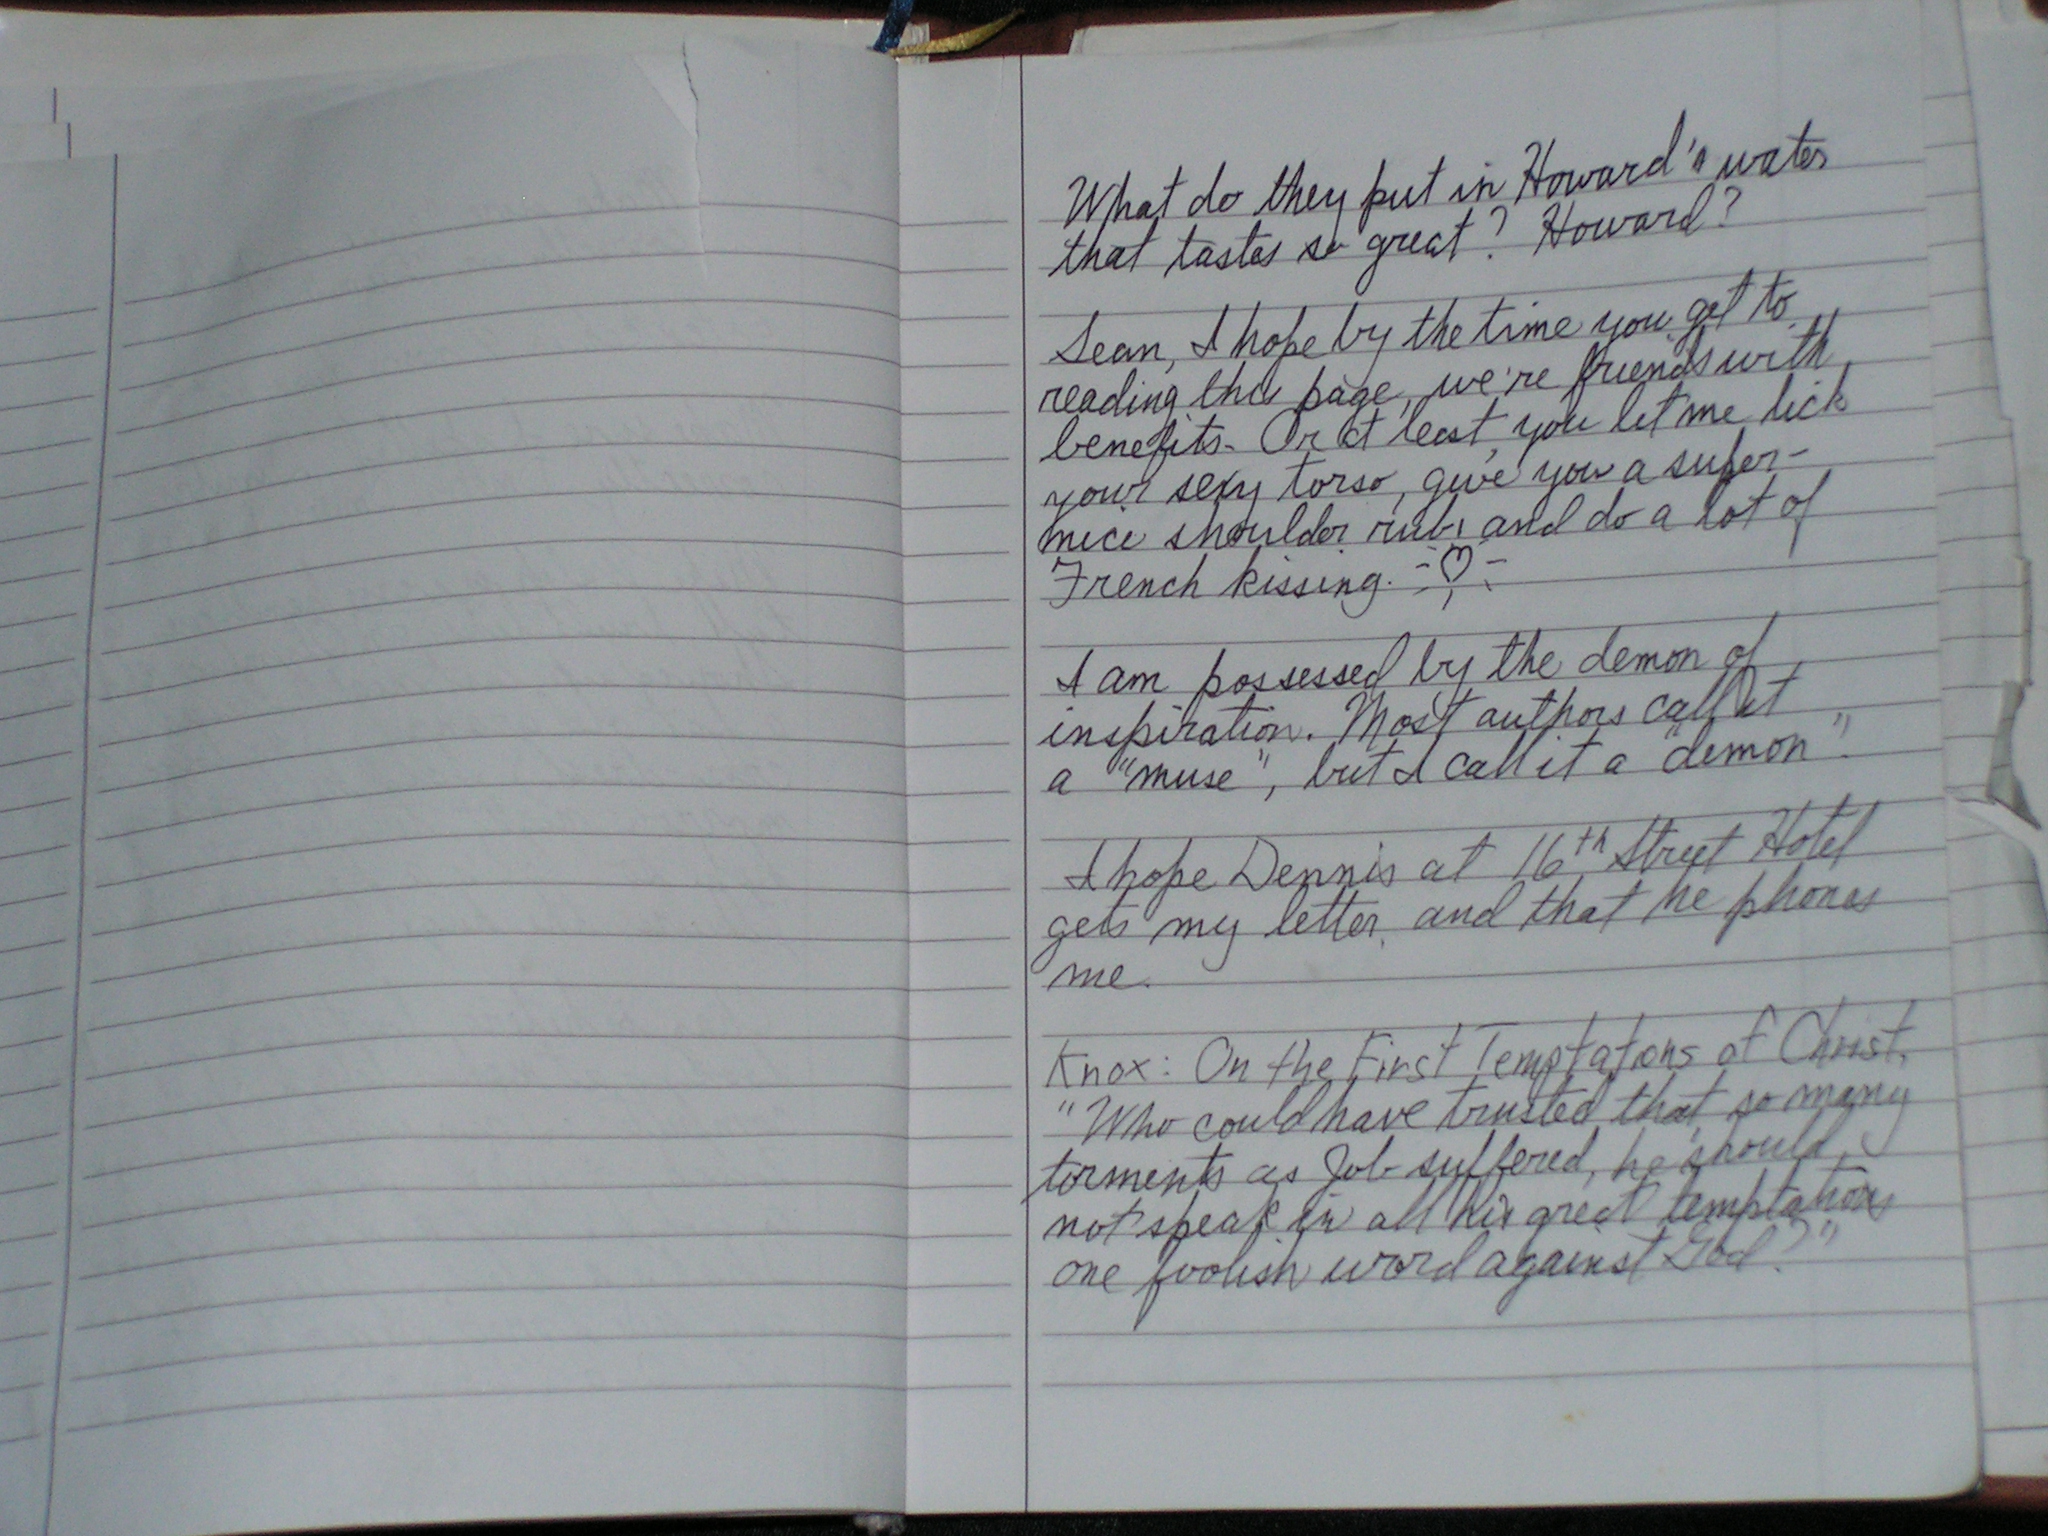 What do they put in Howard's water
that tastes so great? Howard?
Sean, I hope by the time you get to
reading this page, we're friends with
benefits. Or at least, you let me lick
your sexy torso, give you a super-
nice shoulder rub, and do a lot of
French kissing.
I am possessed by the demon of
inspiration. Most authors call it
a "muse", but I call it a "demon".
I hope Dennis at 16th Street Hotel
gets my letter, and that he phones
me.
Knox: On the First Temptations of Christ.
"Who could have trusted that, so many
torments as Job suffered, he should
not speak in all his great temptations
one foolish word against God?"